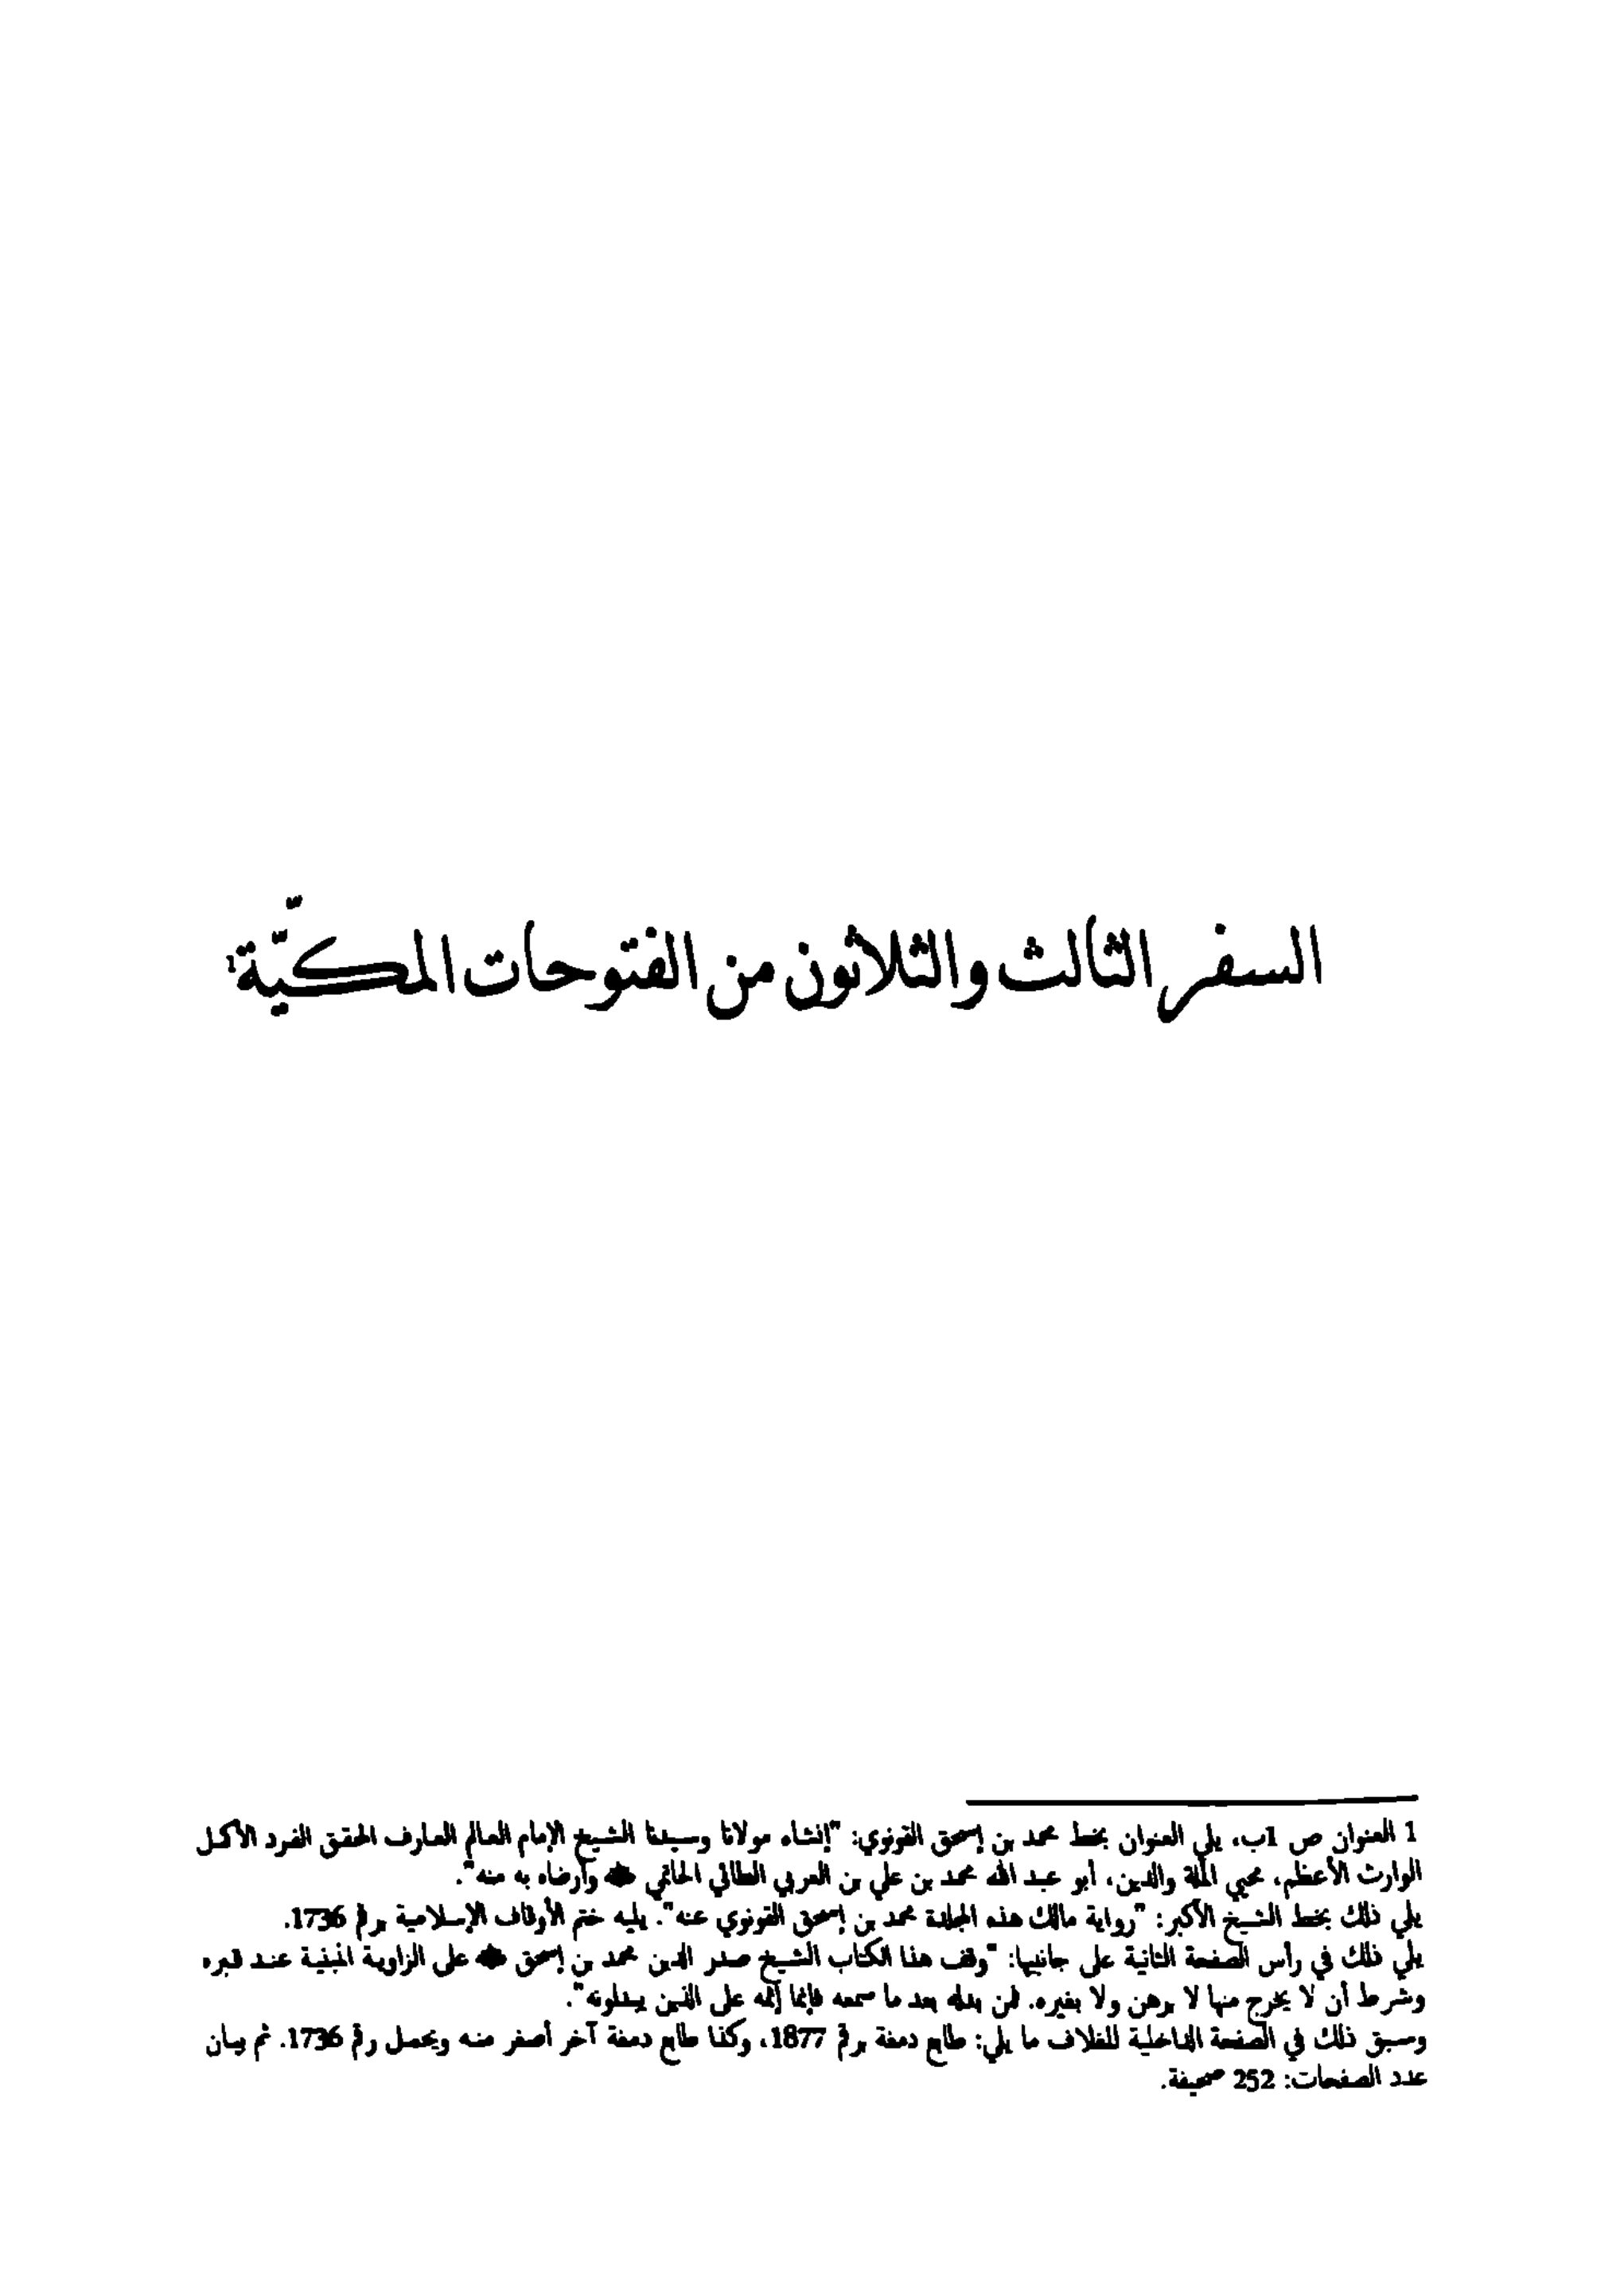 السفر الثالث والثلاثون من الفتوحات المكيّة1
1 العنوان ص 1ب، يلي العنوان بخط محمد بن إسحق القونوي: "إنشاء مولانا وسيدنا الشيخ الإمام العالم العارف المحقق الفرد الأكمل
الوارث الأعظم، محيي الملة والدين، أبو عبد الله محمد بن علي بن العربي الطائي الحاتمي ﷺ وأرضاه به منه".
يلي ذلك بخط الشيخ الأكبر: "رواية مالك هذه المجلدة محمد بن إسحق القونوي عنه". يليه ختم الأوقاف الإسلامية برقم 1736.
يلي ذلك في رأس الصفحة الثانية على جانبيها: "وقف هذا الكتاب الشيخ صدر الدين محمد بن إسحق على الزاوية المبنية عند قبره
وشرط أن لا يخرج منها لا برهن ولا بغيره. فمن بدله بعد ما سمعه فإنما إثمه على الذين يبدلونه".
وسبق ذلك في الصفحة الداخلية للغلاف ما يلي: طابع دمغة برقم 1877، وكذا طابع دمغة آخر أصغر منه ويحمل رقم 1736. ثم بيان
عدد الصفحات: 252 صحيفة.